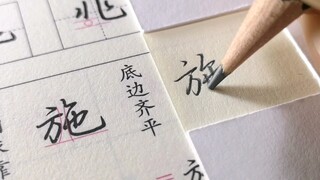 兆
施
底边齐平
施